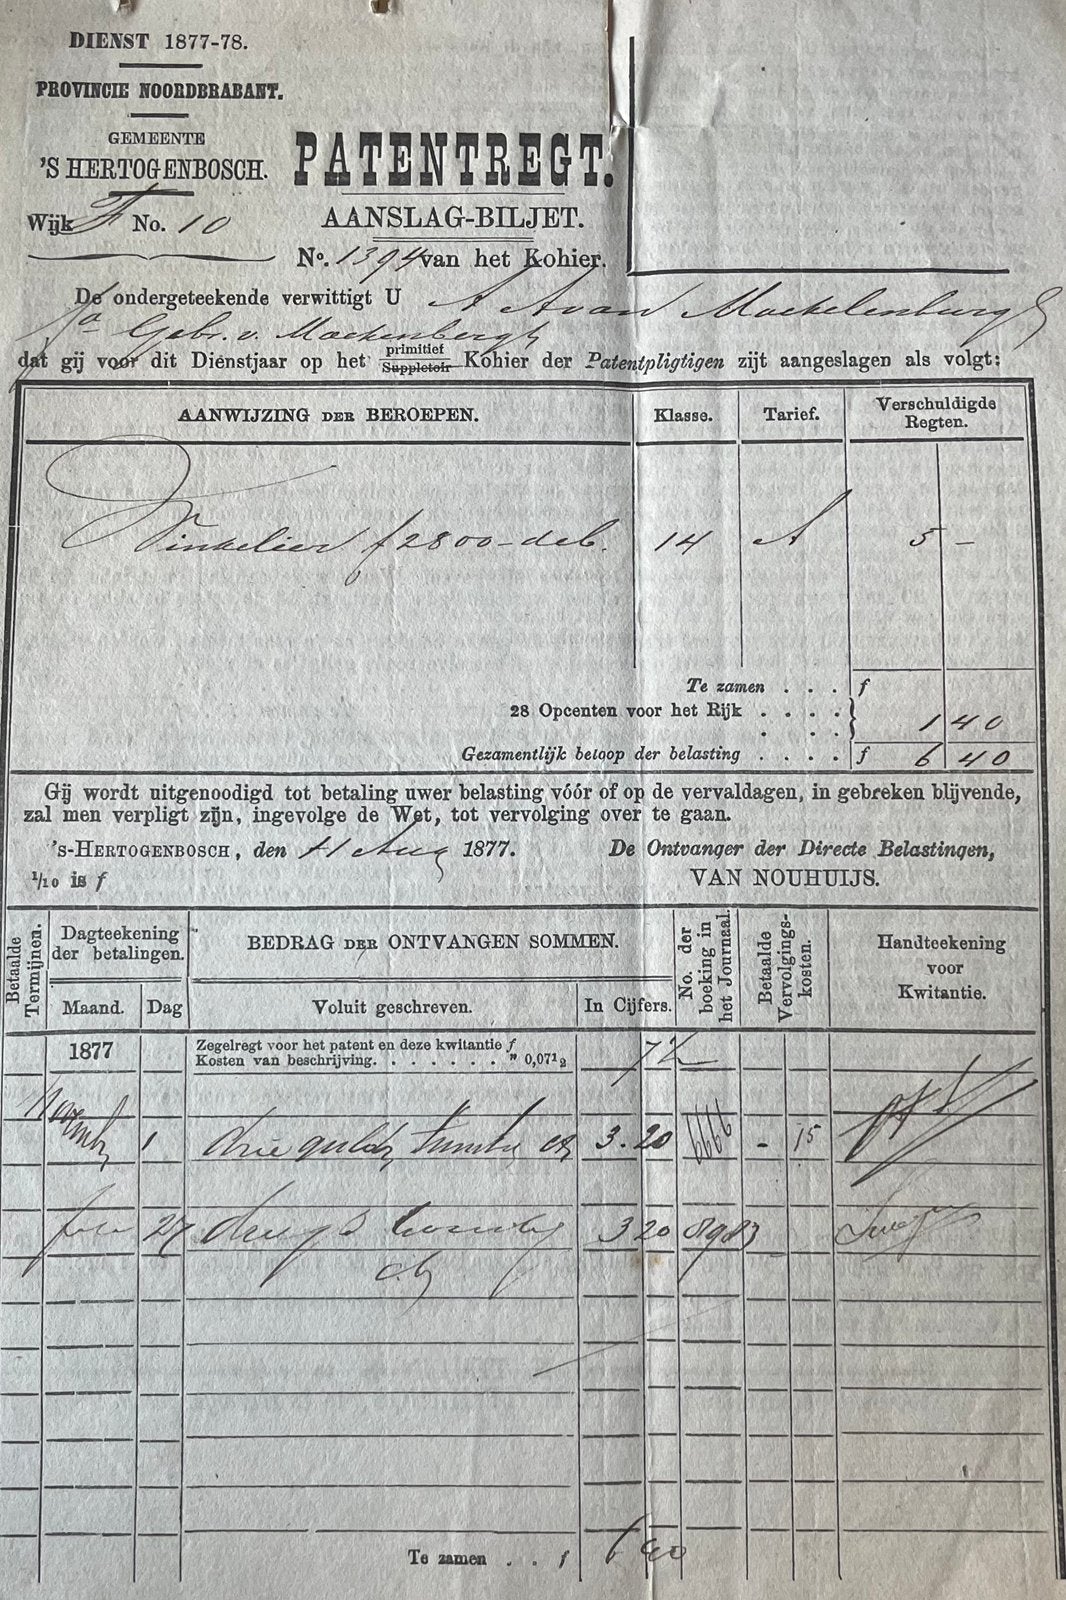 DIENST 1877-78.
PROVINCIE NOORDBRABANT.
GEMEENTE
'S HERTOGENBOSCH.
Wijk F No. 10
PATENTREGT.
AANSLAG-BILJET.
No. 1394 van het Kohier.
De ondergeteekende verwittigt U A A van Mackelenburgh
Fa Gebr. v. Mackenbergh
dat gij voor dit Dienstjaar op het primitief Suppletoir Kohier der Patentpligtigen zijt aangeslagen als volgt:
AANWIJZING DER BEROEPEN. Klasse. Tarief. Verschuldigde Regten.
Winkelier f 2800 - deb. 14 A 5 -
Te zamen . . . f
28 Opcenten voor het Rijk . . . . 1 40
Gezamentlijk beloop der belasting . . . . f 6 40
Gij wordt uitgenoodigd tot betaling uwer belasting vóór of op de vervaldagen, in gebreken blijvende,
zal men verpligt zijn, ingevolge de Wet, tot vervolging over te gaan.
's-HERTOGENBOSCH, den 11 Aug 1877. De Ontvanger der Directe Belastingen,
1/10 is f VAN NOUHUIJS.
Betaalde Termijnen. Dagteekening der betalingen. BEDRAG DER ONTVANGEN SOMMEN. No. der boeking in het Journaal. Betaalde Vervolgings-kosten. Handteekening voor Kwitantie.
Maand. Dag Voluit geschreven. In Cijfers.
1877 Zegelregt voor het patent en deze kwitantie f
Kosten van beschrijving. . . . . . . " 0,07½ 7½
Novemb 1 drie guldn twintig ct 3.20 - 15
febr 27 drie gld twintig 3 20
ct
Te zamen . . f 6 40